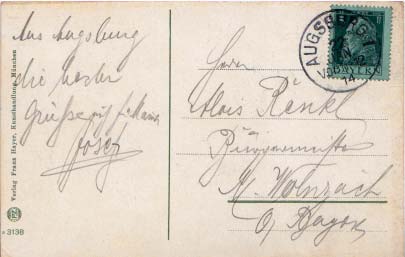 Aus Augsburg
die besten
Grüße
Josef
Herrn
Alois Renkl
Bürgermeister
M. Wolnzach
o/ Bayern
AUGSBURG
BAYERN
14
Verlag Franz Hayer, Kunsthandlung, München
3138